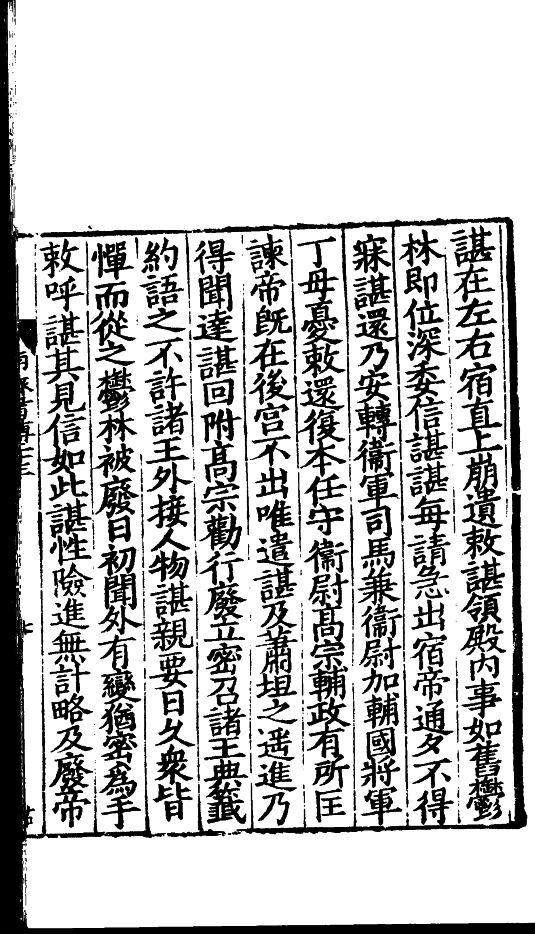 諶在左右宿直上崩遺敕諶領殿内事如舊鬱
林即位深委信諶諶每請急出宿帝通夕不得
寐諶還乃安轉衞軍司馬兼衞尉加輔國將軍
丁母憂敕還復本任守衞尉高宗輔政有所匡
諫帝旣在後宫不出唯遣諶及蕭坦之遥進乃
得聞達諶回附高宗勸行廢立密召諸王典籖
約語之不許諸王外接人物諶親要日久衆皆
憚而從之鬱林被廢日初聞外有變猶密爲手
敕呼諶其見信如此諶性險進無計略及廢帝